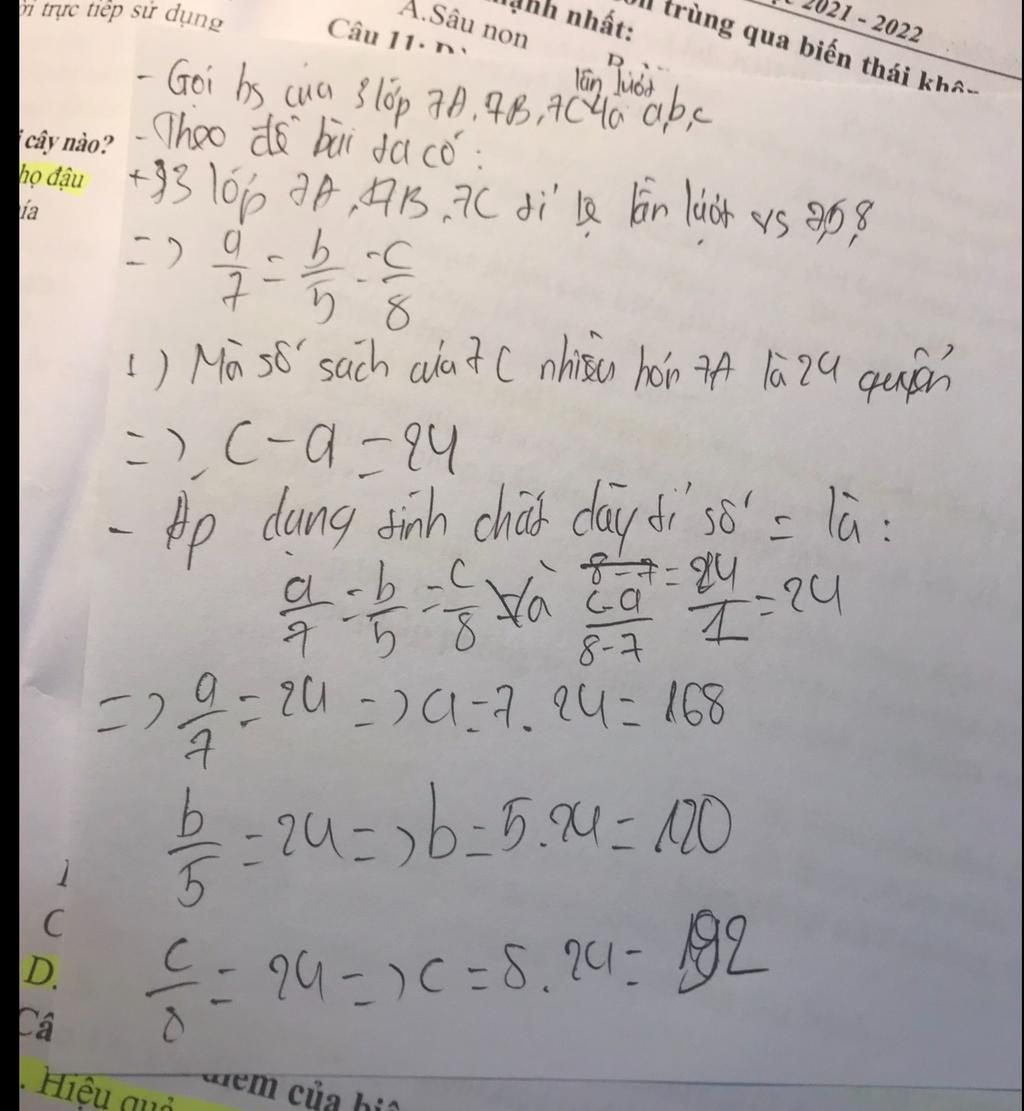 ời trực tiếp sử dụng
A.Sâu non
ạnh nhất:
trùng qua biến thái khô
2021 - 2022
Câu 11.
- Gọi hs của 3 lớp 7A, 7B, 7C lần lượt là a,b,c
cây nào?
- Theo đề bài ta có:
họ đậu
ía
+ 3 lớp 7A, 7B, 7C tỉ lệ lần lượt vs 7,5,8
=> a/7 = b/5 = c/8
1) Mà số sách của 7C nhiều hơn 7A là 24 quyển
=> c - a = 24
- Áp dụng tính chất dãy tỉ số = là:
8-7 = 24
a/7 = b/5 = c/8 Và c-a/8-7 24/1 = 24
=> a/7 = 24 => a = 7. 24 = 168
b/5 = 24 => b = 5. 24 = 120
c/8 = 24 => c = 8. 24 = 192
C
D.
Câ
. Hiệu quả
điểm của biê